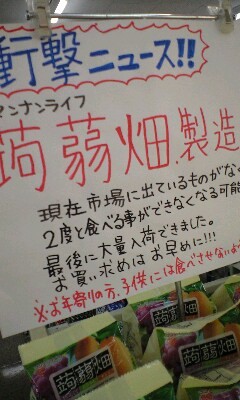 衝撃ニュース!!
マンナンライフ
蒟蒻畑.製造
現在市場に出ているものがな
2度と食べる事ができなくなる可能
最後に大量入荷できました。
お買い求めはお早めに!!!
※お年寄りの方、子供には食べさせない
蒟蒻畑
蒟蒻畑
蒟蒻畑